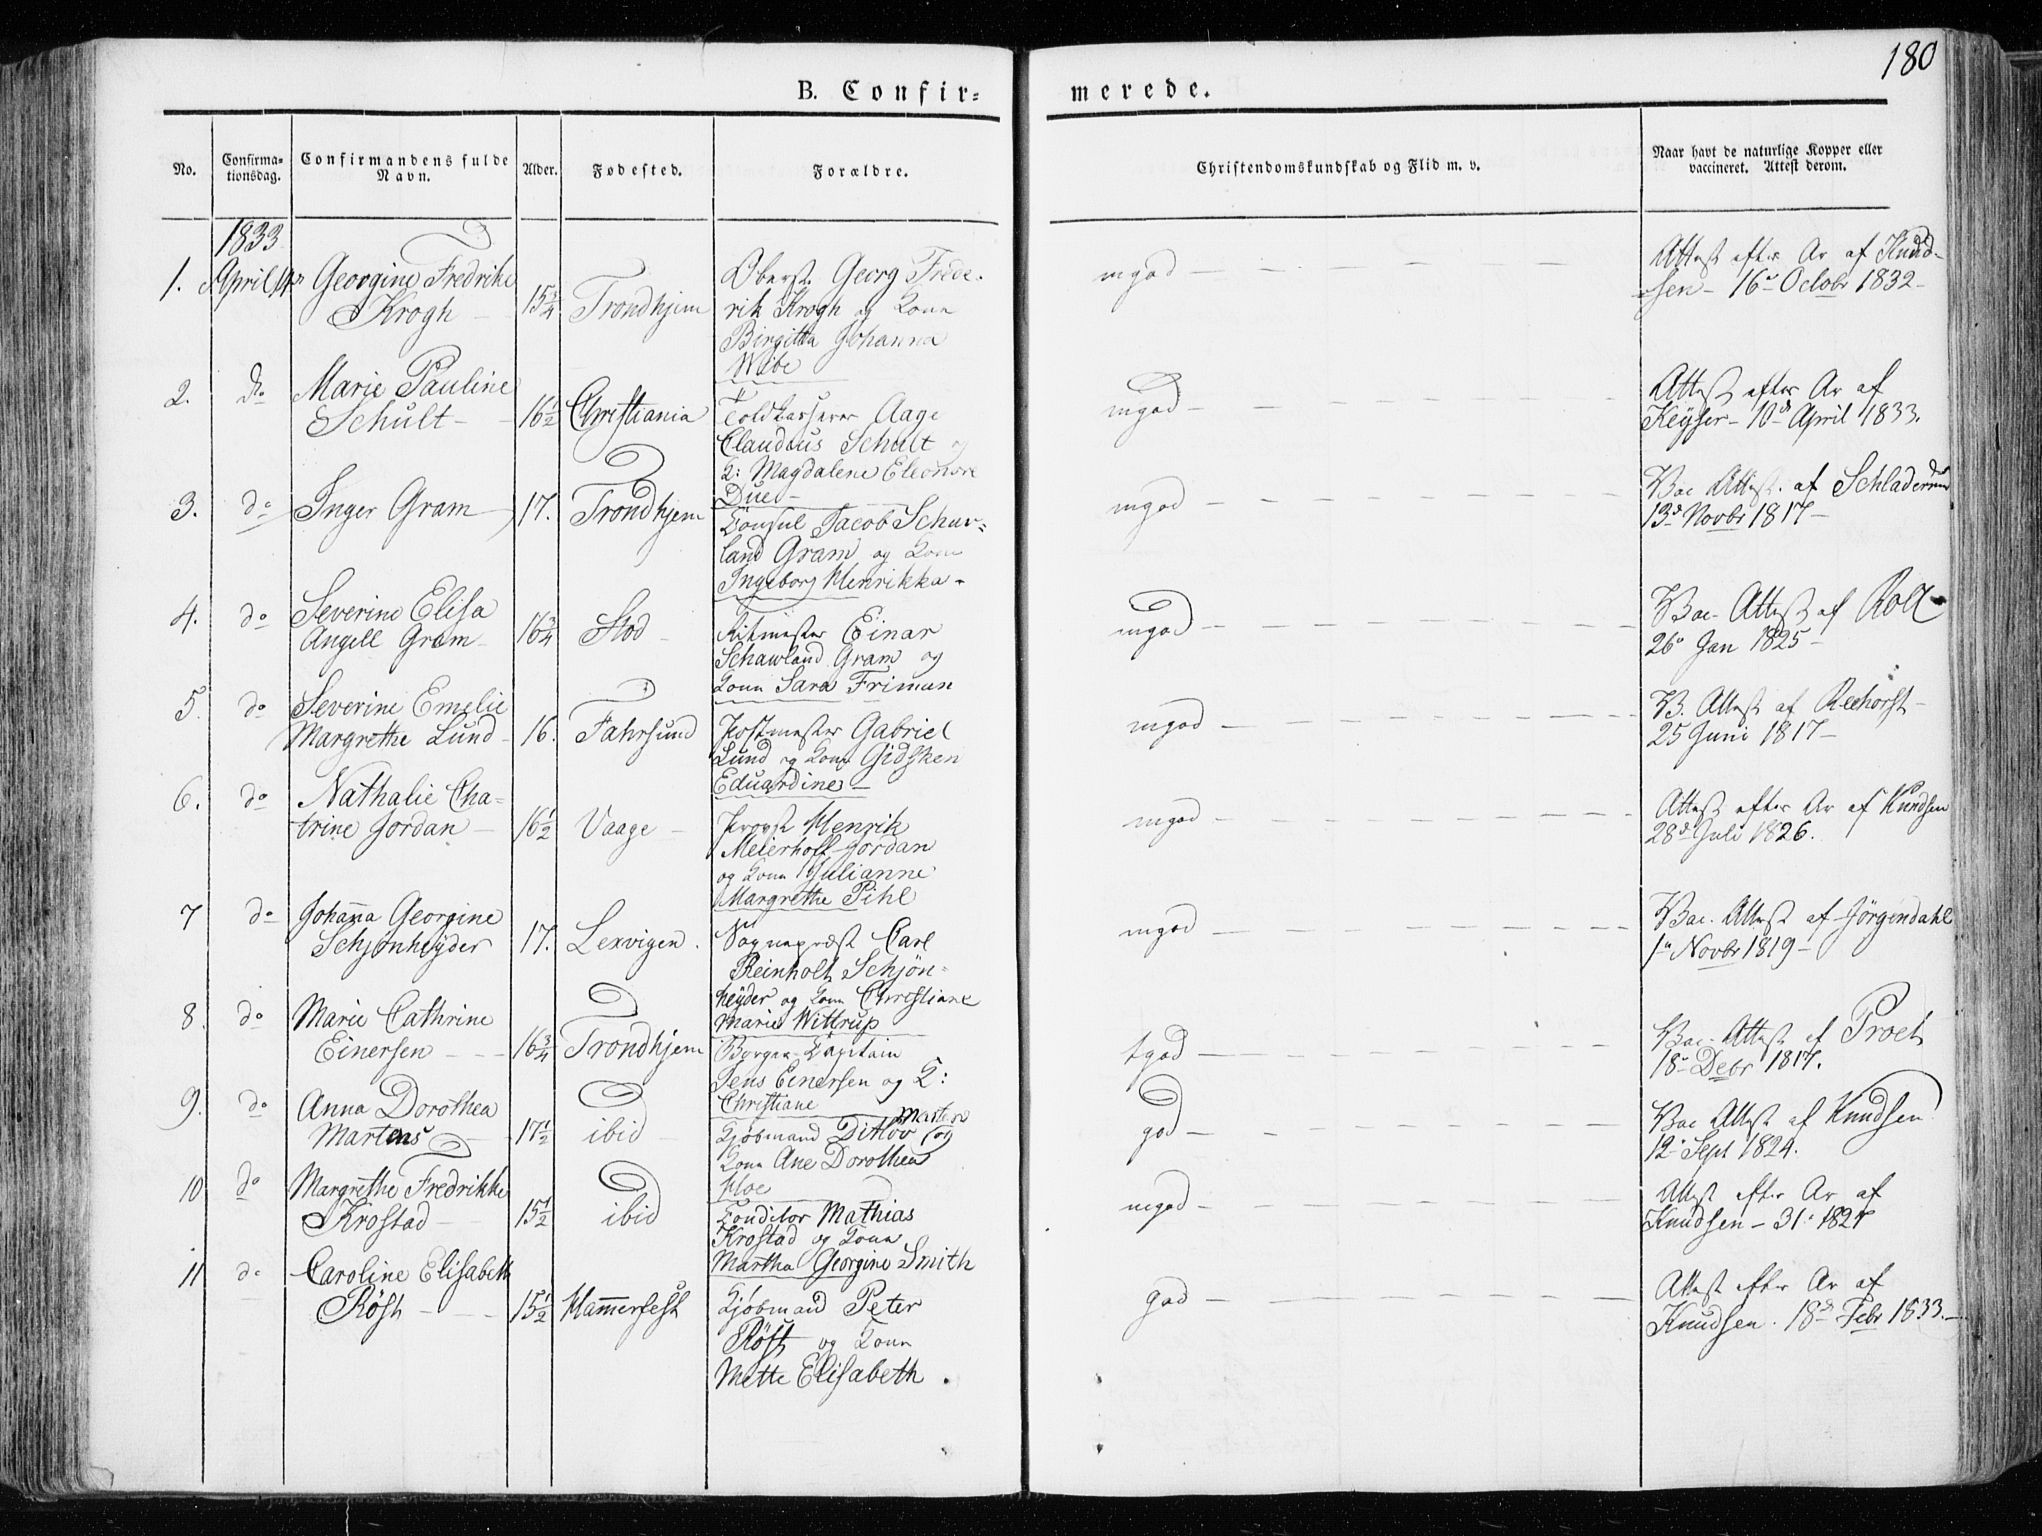 180
B. Confir- merede.
No.
Confirma-
tionsdag.
Confirmandens fulde
Navn.
Alder.
Fødested.
Forældre.
Christendomskundskab og Flid m. v.
Naar havt de naturlige Kopper eller
vaccineret. Attest derom.
1833
1. April 14 Georgine Fredrike
Krogh
15 3/4 Trondhjem
Oberst Georg Frede-
rik Krogh og Kone
Birgitta Johanna
Wibe
mgod
Attest efter Ar af Knud-
sen 16 Octobr 1832
2. do Marie Pauline
Schult
16 1/2 Christiania
Toldkasserer Aage
Claudius Schult og
K: Magdalene Eleonore
Due
mgod
Attest efter Ar af
Keyser 10d April 1833.
3. do Inger Gram 17. Trondhjem
Consul Jacob Schav-
land Gram og Kone
Ingeborg Henrikka
mgod
Vac Attest af
13d Novbr 1817
4. do Severine Elisa
Angell Gram
16 3/4 Stod
Ritmester Einar
Schawland Gram og
Kone Sara Friman
mgod
Vac. Attest af
26 Jan 1825
5. do Severine Emelie
Margrethe Lund
16. Fahrsund
Postmester Gabriel
Lund og Kone Gidsken
Eduardine
mgod
V. Attest af Reehorst
25 Juni 1817
6. do Nathalie Cha-
trine Jordan
16 1/2 Vaage
Provst Henrik
Meierhoff Jordan
og Kone Julianne
Margrethe Pihl
mgod
Attest efter Ar af Knudsen
28d Juli 1826.
7 do Johanna Georgine
Schjønheyder
17. Lexvigen.
Sognepræst Carl
Reinholt Schjøn-
heyder og Kone Christiane
Marie Wittrup
mgod
Vac. Attest af Jørgendahl
1 Novbr 1819
8. do Marie Cathrine
Einersen
16 3/4 Trondhjem
Borger-Capitain
Jens Einersen og K:
Christiane
tgod
Vac. Attest af
18 Debr 1817.
9. do Anna Dorothea
Martens
17 1/2 ibid
Kjøbmand Ditlov Martens og
Kone Ane Dorothea
Hoe
god
Vac Attest af Knudsen
12 Sept 1824.
10 do Margrethe Fredrikke
Krostad
15 1/2 ibid
Conditor Mathias
Krostad og Kone
Martha Georgine Smith
mgod
Attest efter Ar af
Knudsen 31. 1827
11 do Caroline Elisabeth
Røst
15 1/2 Hammerfest
Kjøbmand Peter
Røst og Kone
Mette Elisabeth.
god
Attest efter Ar af
Knudsen. 18d Febr 1833.